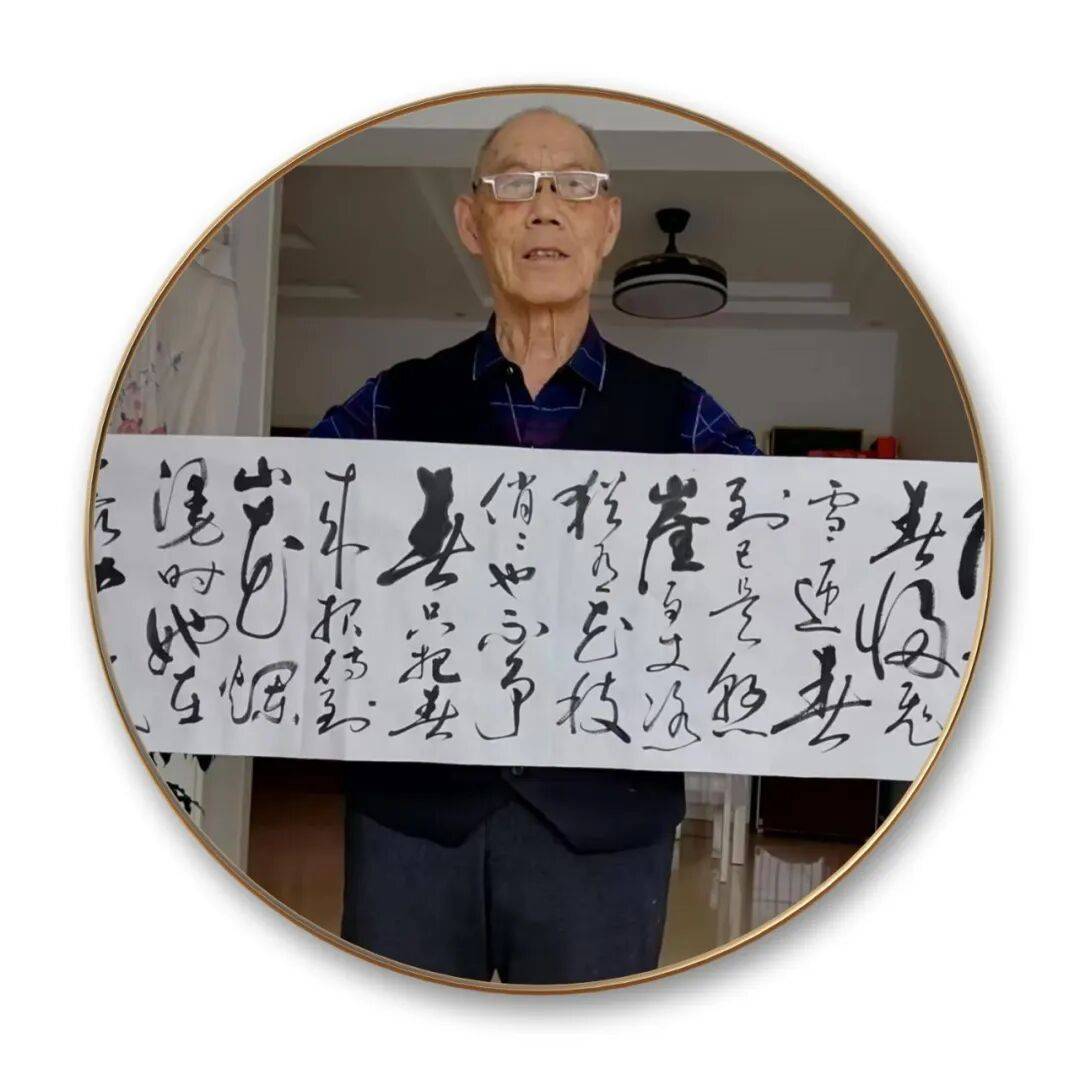 春归飞
雪迎春
到已是悬
崖百丈冰
猶有花枝
俏〻也不争
春只把春
来报待到
山花爛
漫时她在